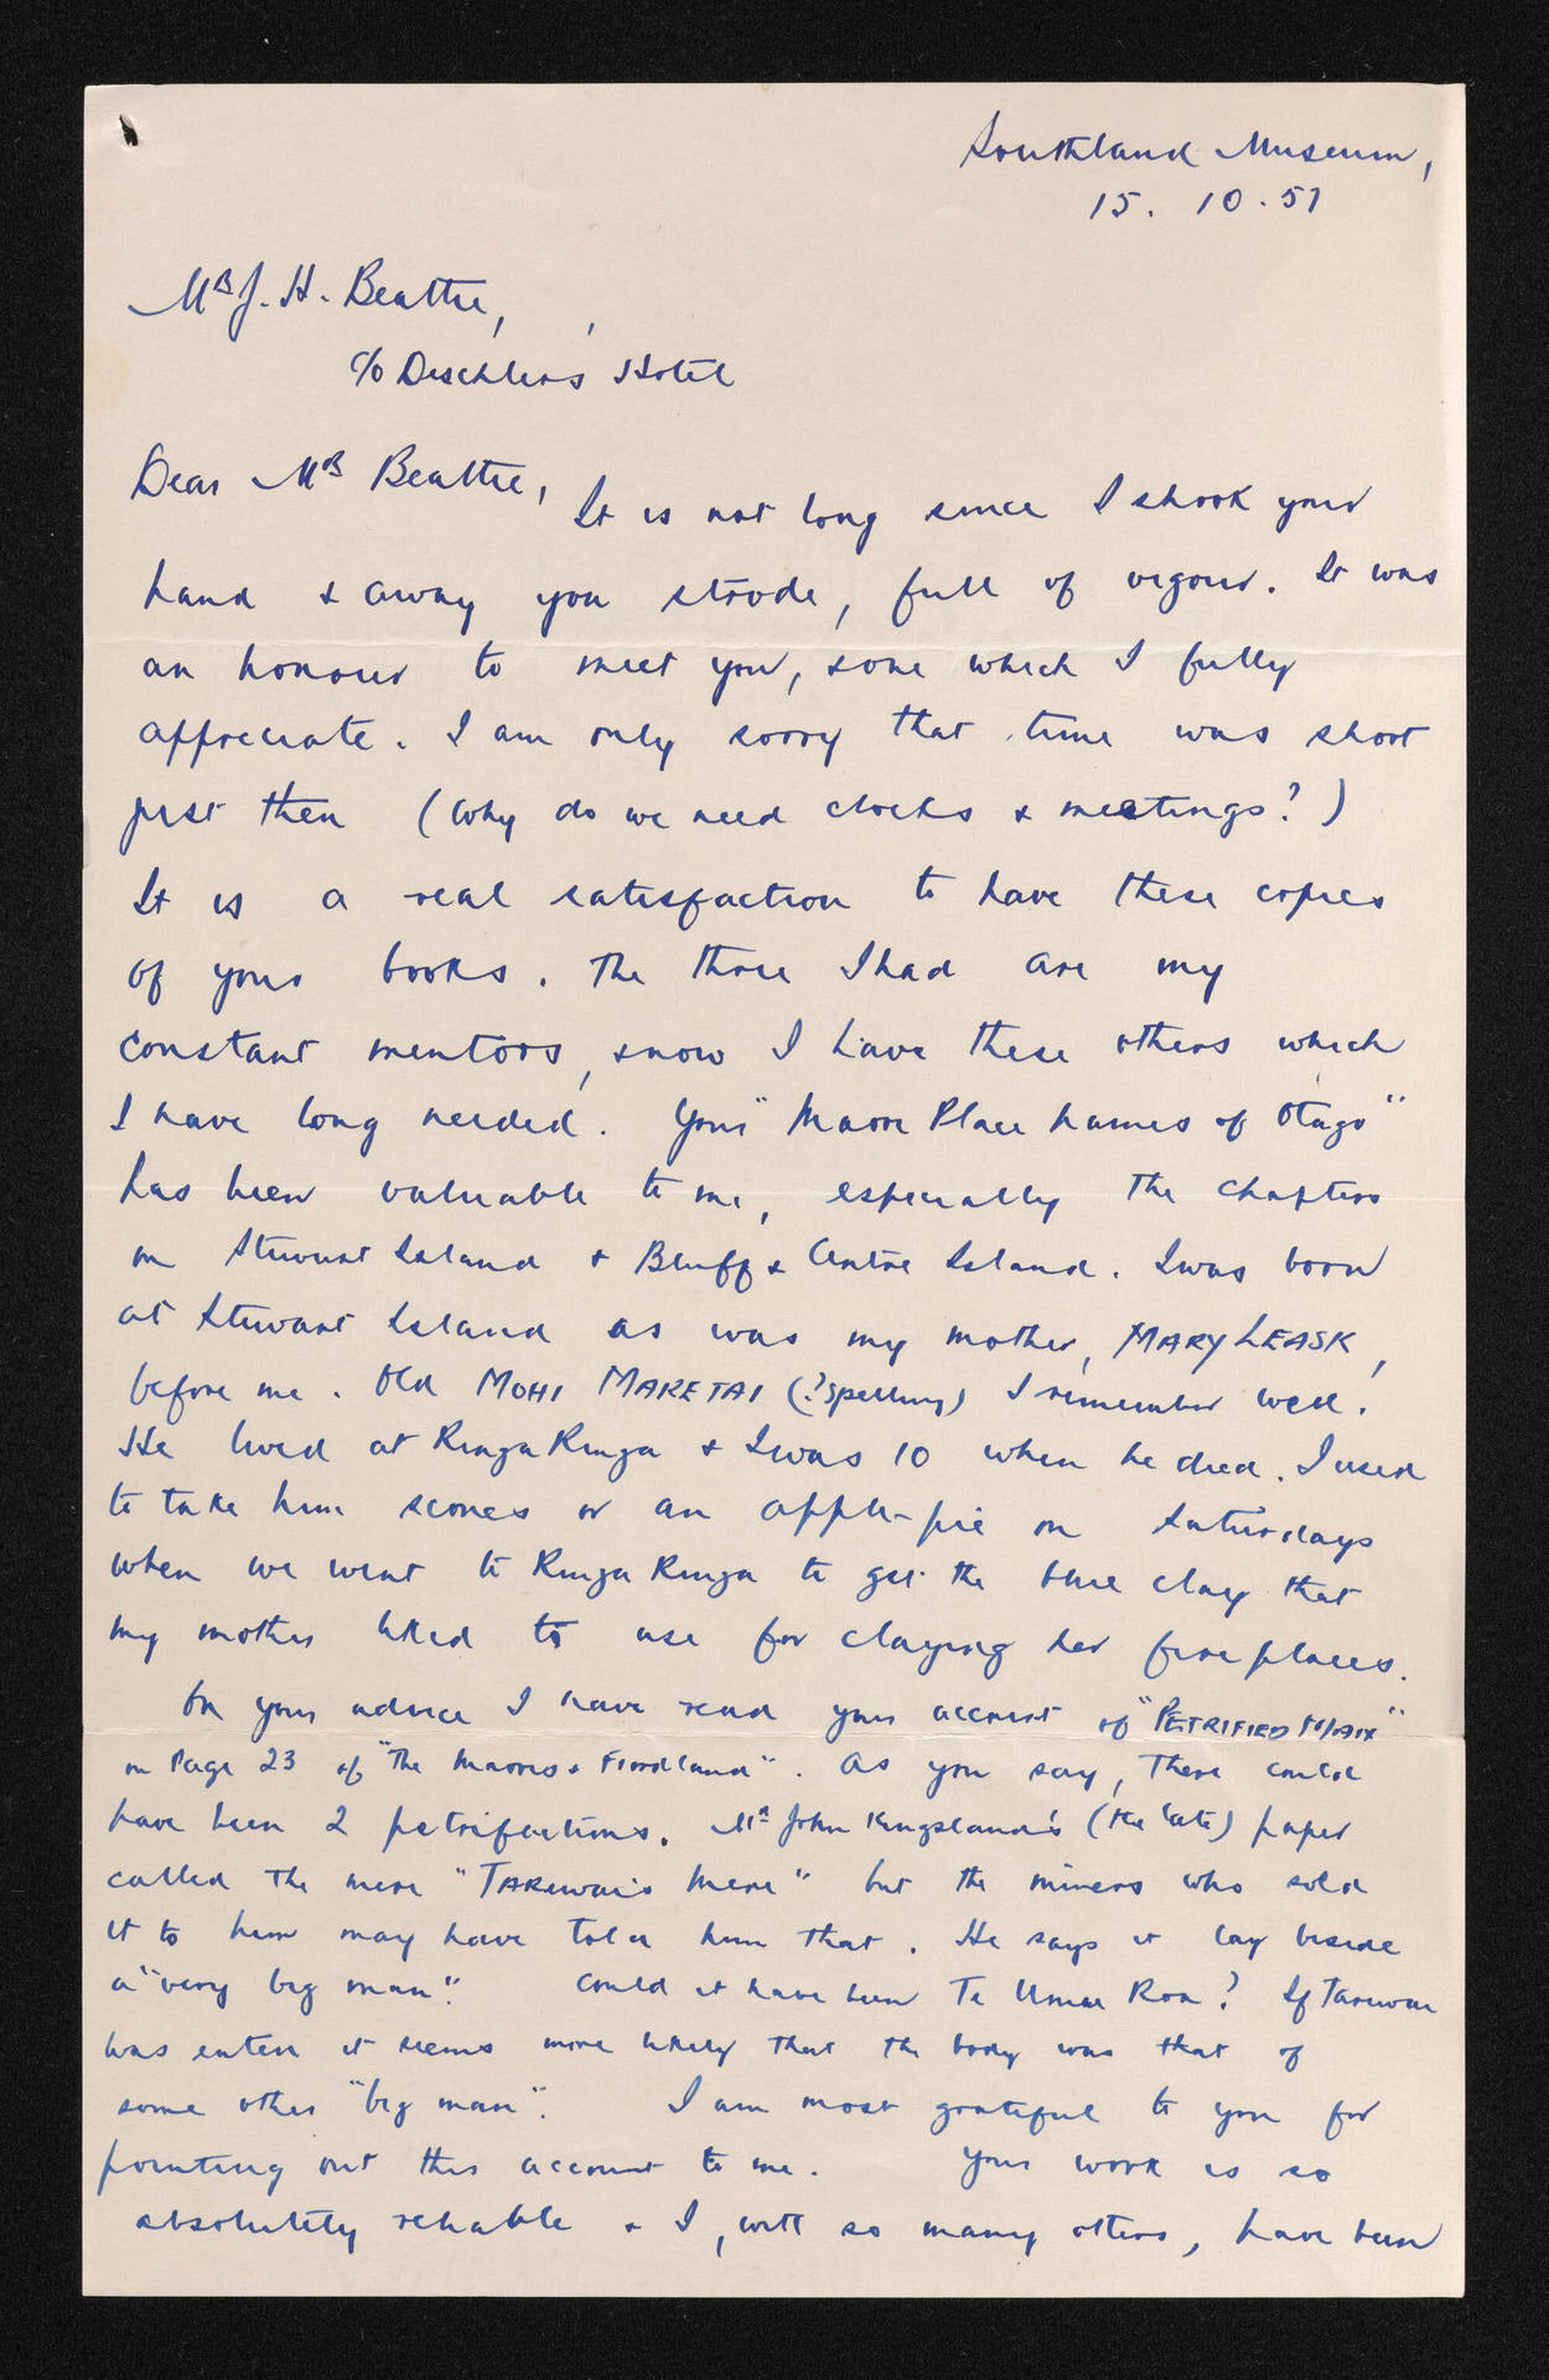 Southland Museum,
15. 10. 51
Mr J. H. Beattie,
c/o Deschlers Hotel
Dear Mr Beattie,
It is not long since I shook your
hand & away you strode, full of vigour. It was
an honour to meet you, & one which I fully
appreciate. I am only sorry that time was short
just then (Why do we need clocks & meetings?)
It is a real satisfaction to have these copies
of your books. The three I had are my
constant mentors, & now I have these others which
I have long needed. Your "Maori Place names of Otago"
has been valuable to me, especially the chapters
on Stewart Island & Bluff & Centre Island. I was born
at Stewart Island as was my mother, MARY LEASK,
before me. Old MOHI MARETAI (? spelling) I remember well.
He lived at Ringa Ringa & I was 10 when he died. I used
to take him scones or an apple-pie on Saturdays
when we went to Ringa Ringa to get the blue clay that
my mother liked to use for claying her fireplaces.
On your advice I have read your account of "PETRIFIED MAN"
on Page 23 of "The Maoris & Fiordland". As you say, there could
have been 2 petrifactions. Mr John Kingsland's (the late) paper
called the mere "TAREWAI's Mere" but the miners who sold
it to him may have told him that. He says it lay beside
a "very big man". Could it have been Te Uma Roa? If Tarewai
was eaten it seems more likely that the body was that of
some other "big man". I am most grateful to you for
pointing out this account to me. Your work is so
absolutely reliable & I, with so many others, have been